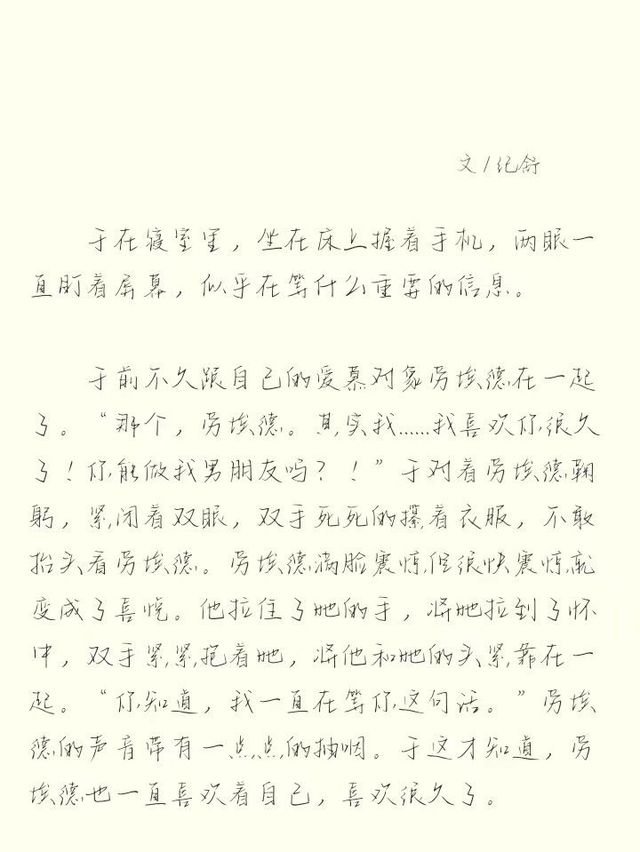 文/纪舒
于在寝室里，坐在床上握着手机，两眼一
直盯着屏幕，似乎在等什么重要的信息。
于前不久跟自己的爱慕对象劳埃德在一起
了。“那个，劳埃德。其实我......我喜欢你很久
了！你能做我男朋友吗？！”于对着劳埃德鞠
躬，紧闭着双眼，双手死死的攥着衣服，不敢
抬头看劳埃德。劳埃德满脸震惊，但很快震惊就
变成了喜悦。他拉住了她的手，将她拉到了怀
中，双手紧紧抱着她，将他和她的头紧靠在一
起。“你知道，我一直在等你这句话。”劳埃
德的声音带有一点点的抽咽。于这才知道，劳
埃德也一直喜欢着自己，喜欢很久了。